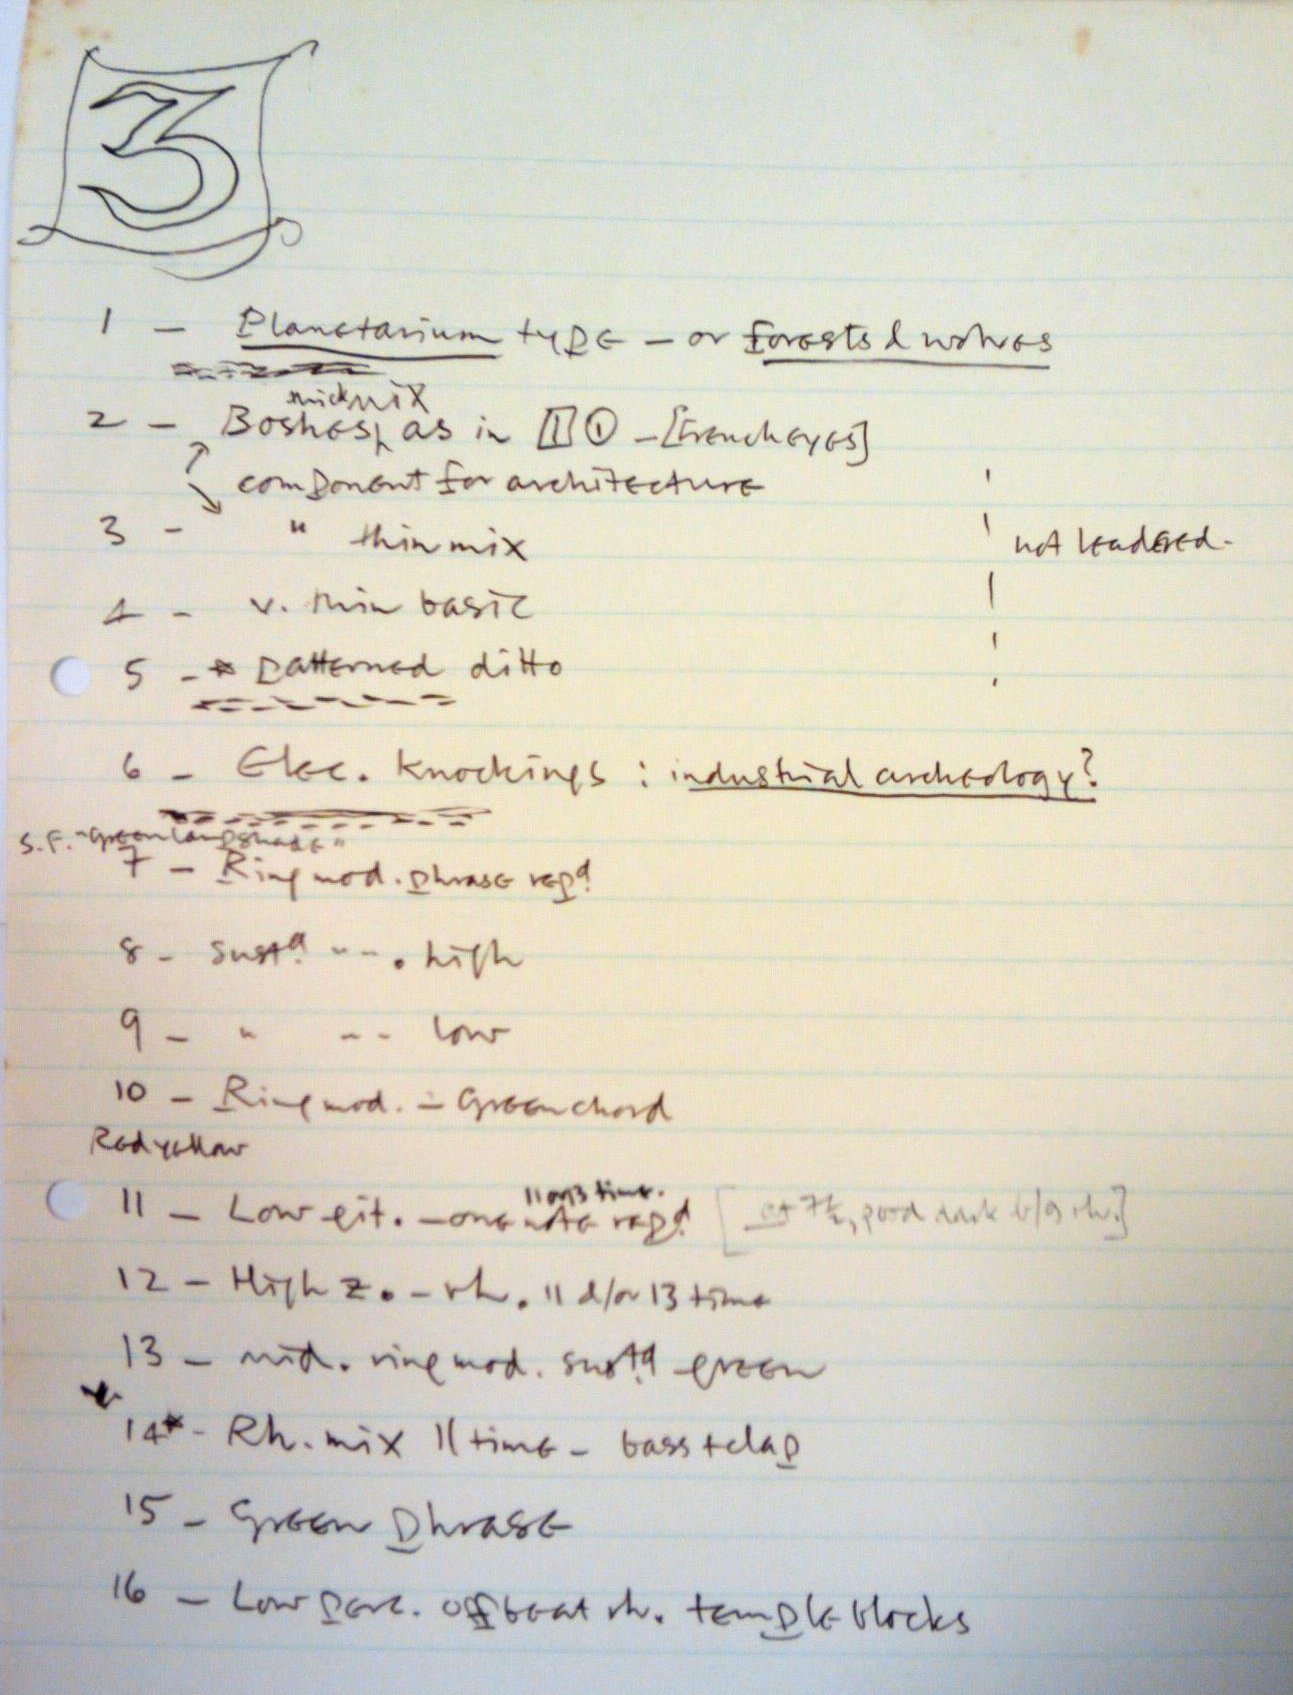 3
1 - Planetarium type - or Forests & wolves
thick mix
2 - Boshes, as in II ① - [French eyes]
component for architecture
3 - " thin mix
not leadered.
4 - v. thin basic
5 - * patterned ditto
6 - Elec. Knockings : industrial archeology?
S.F. - "Green lampshade"
7 - Ring mod. phrase repd
8 - Sustd " " . high
9 - " " " low
10 - Ring mod. - Green chord
Red yellow
11 or 13 time.
11 - Low git. - one note repd [at 7½, good dark b/g rh.]
12 - High z. - rh. 11 &/or 13 time
13 - mid. ring mod. sustd green
14* - Rh. mix 11 time - bass + clap
15 - Green phrase
16 - Low perc. off beat rh. temple blocks